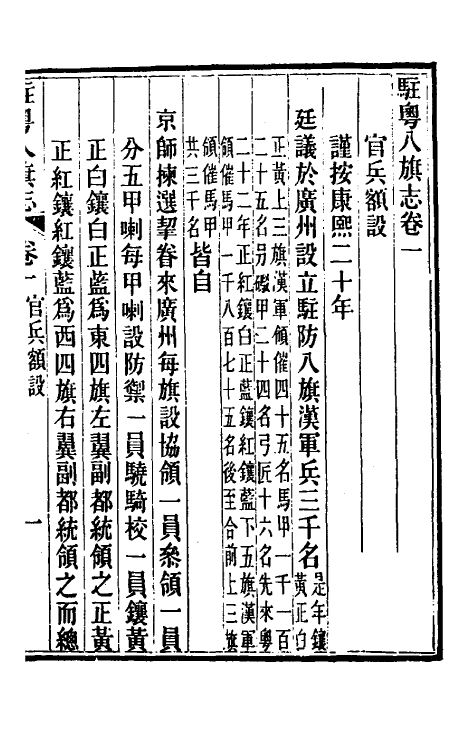 駐粵八旗志卷一
官兵額設
謹按康熙二十年
廷議於廣州設立駐防八旗漢軍兵三千名是年鑲
黃正白
正黃上三旗漢軍領催四十五名馬甲一千一百
二十五名另礮甲二十四名弓匠十六名先來粵
二十二年正紅鑲白正藍鑲紅鑲藍下五旗漢軍
領催馬甲一千八百七十五名後至合前上三旗
領催馬甲
共三千名皆自
京師揀選挈眷來廣州每旗設協領一員叅領一員
分五甲喇每甲喇設防禦一員驍騎校一員鑲黃
正白鑲白正藍爲東四旗左翼副都統領之正黃
正紅鑲紅鑲藍爲西四旗右翼副都統領之而總
駐粵八旗志 卷一 官兵額設 一